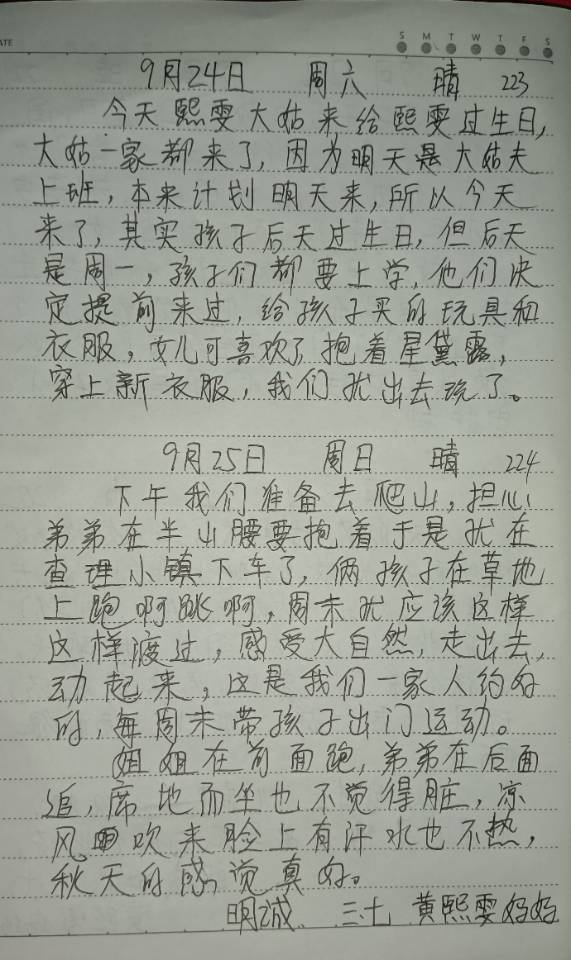 ATE
S M T W T F S
9月24日 周六 晴 223
今天熙雯大姑来给熙雯过生日,
大姑一家都来了,因为明天是大姑夫
上班,本来计划明天来,所以今天
来了,其实孩子后天过生日,但后天
是周一,孩子们都要上学,他们决
定提前来过,给孩子买的玩具和
衣服,女儿可喜欢了抱着星黛露,
穿上新衣服,我们就出去玩了。
9月25日 周日 晴 224
下午我们准备去爬山,担心
弟弟在半山腰要抱着于是就在
查理小镇下车了,俩孩子在草地
上跑啊跳啊,周末就应该这样
这样渡过,感受大自然,走出去,
动起来,这是我们一家人约好
的,每周末带孩子出门运动。
姐姐在前面跑,弟弟在后面
追,席地而坐也不觉得脏,凉
风吹来脸上有汗水也不热,
秋天的感觉真好。
明诚 三七 黄熙雯妈妈